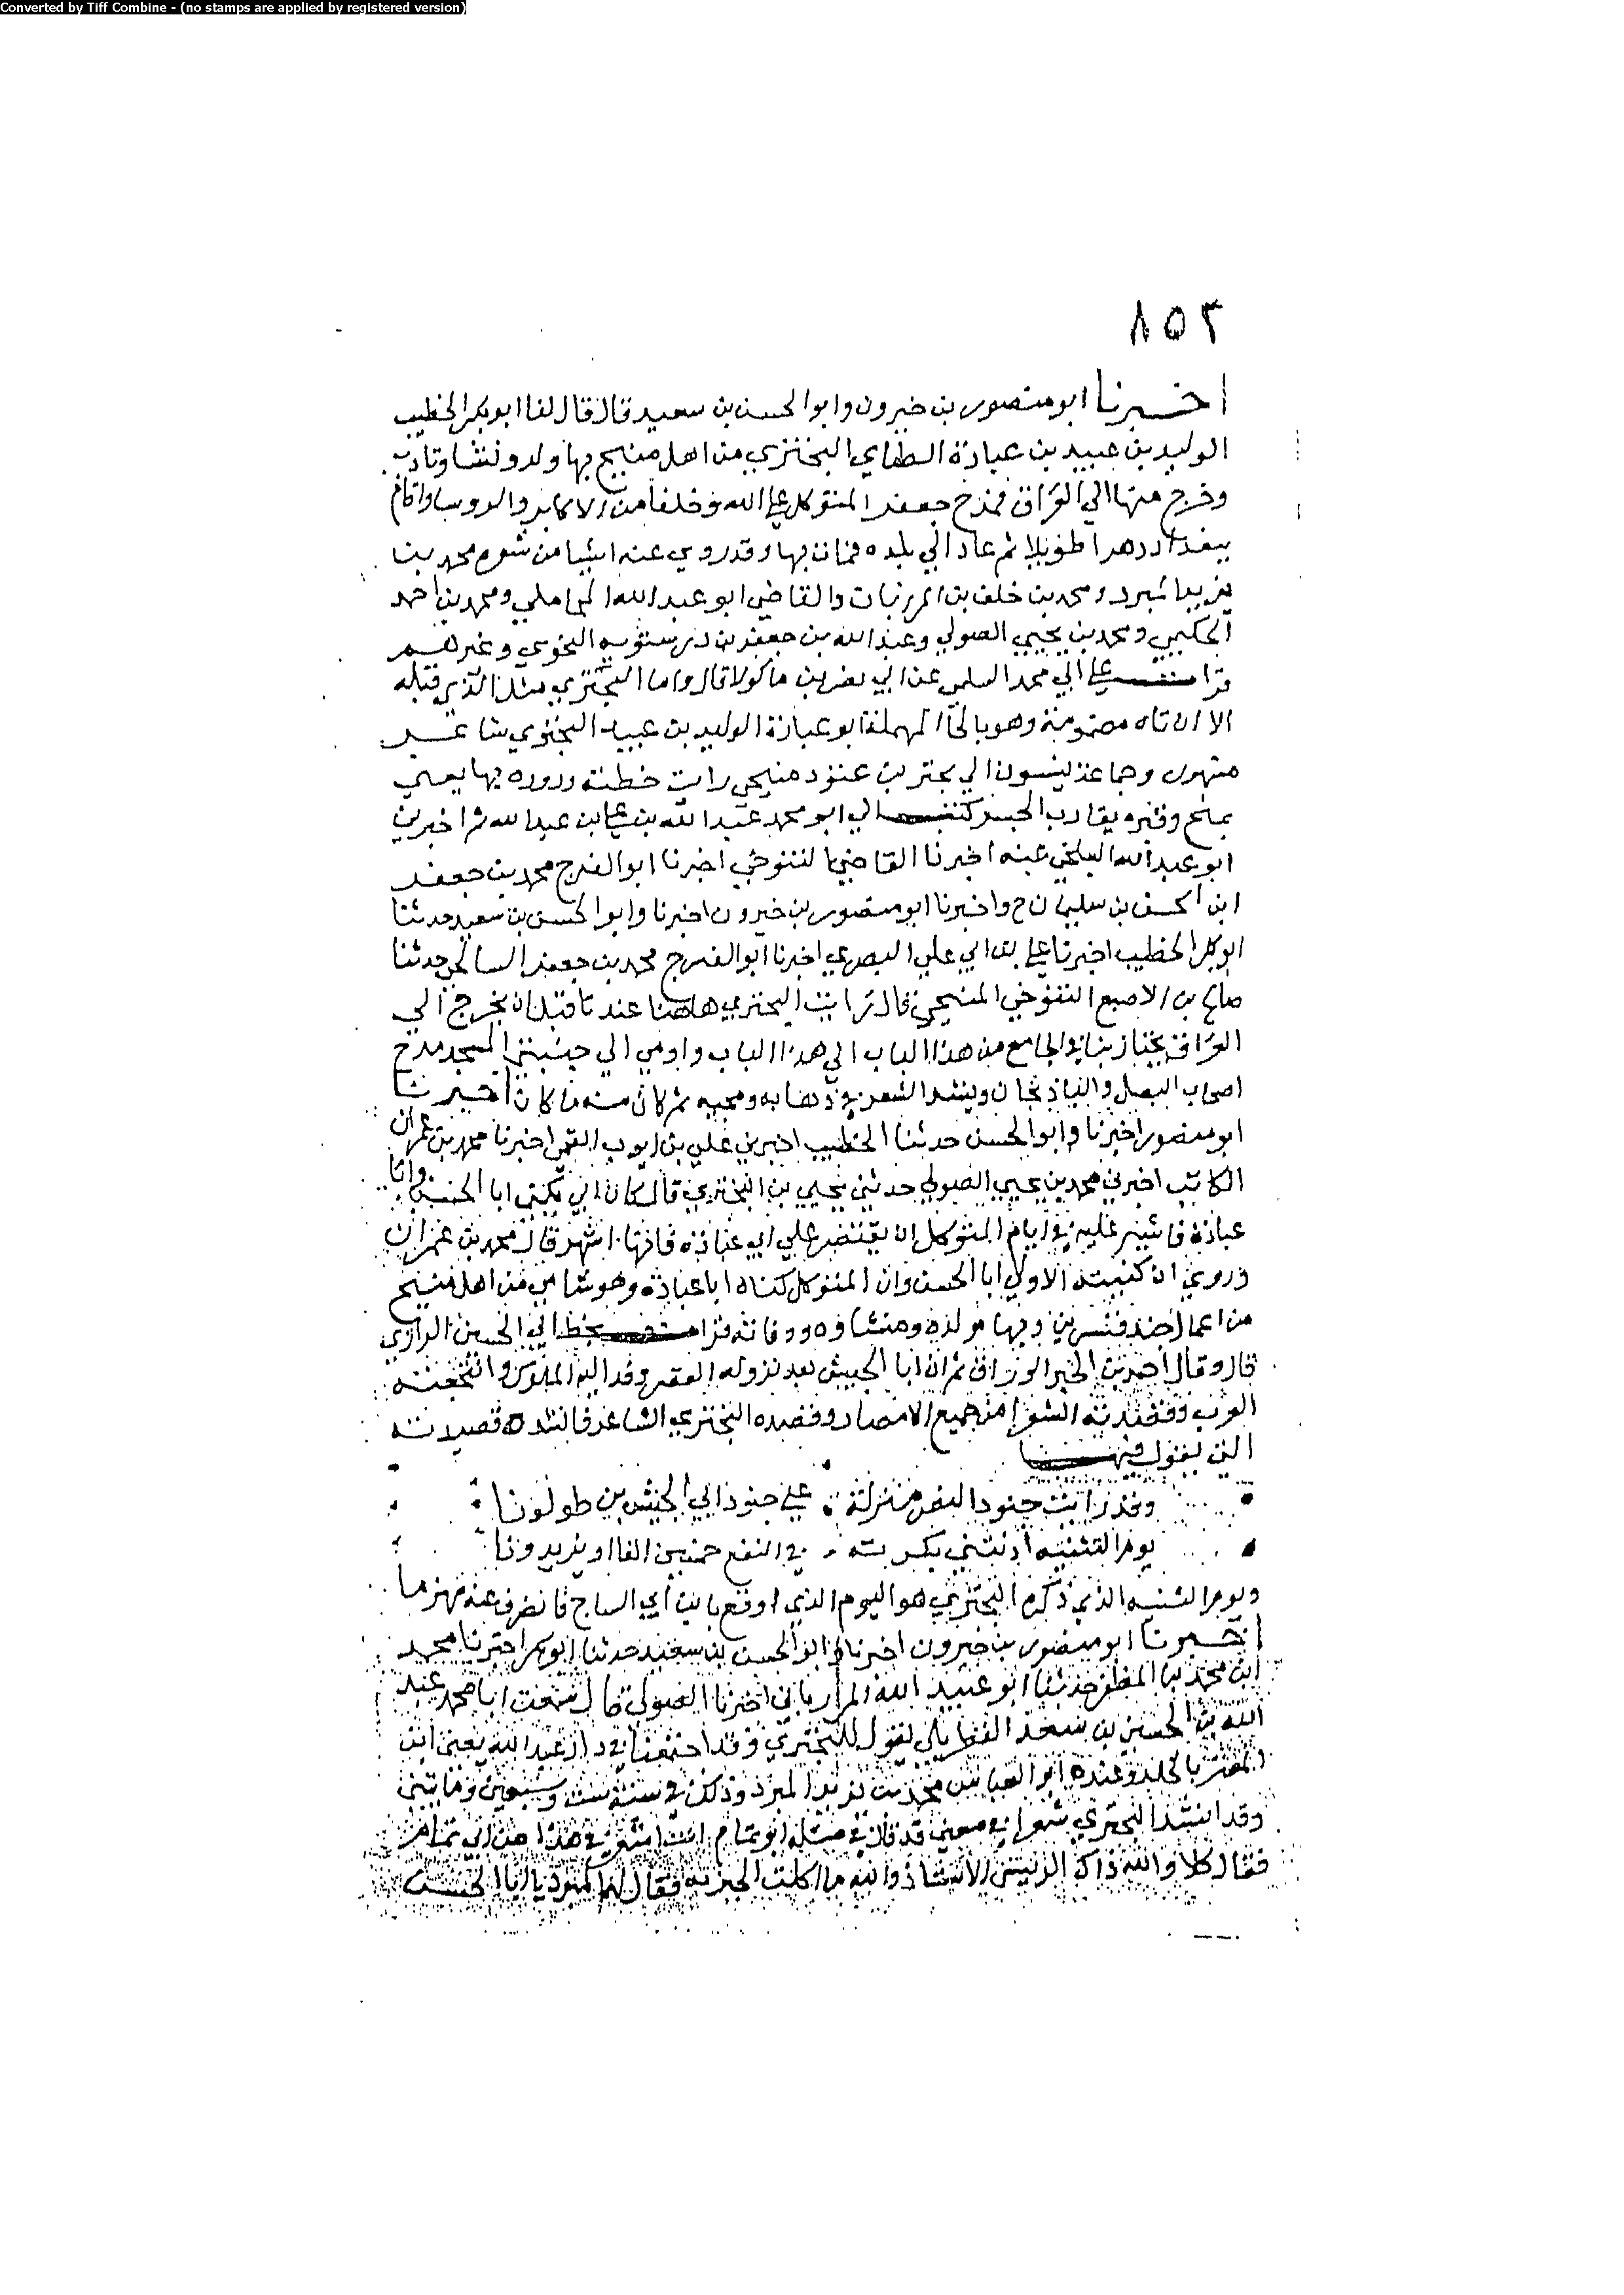 Converted by Tiff Combine - (no stamps are applied by registered version)
٨٥٢
اخبرنا ابو منصور بن خيرون وابو الحسن بن سعيد قال قال لنا ابو بكر الخطيب
الوليد بن عبيد بن عبادة الطاي البختري من اهل منبج بها ولد ونشا وتادب
وخرج منها الي العراق فمدح جعفر المتوكل علي الله وخلقا من الاكابر والروسا واقام
ببغداد دهرا طويلا ثم عاد الي بلده فمات بها وقد روي عنه اشيا من شعره محمد بن
يزيد المبرد ومحمد بن خلف بن المرزبان والقاضي ابو عبد الله المحاملي ومحمد بن احمد
الحكيمي ومحمد بن يحيي الصولي وعبد الله بن جعفر بن درستويه النحوي وغيرهم
قرات علي ابي محمد السلمي عن ابي نصر بن ماكولا قال واما البحتري مثل الذي قبله
الا ان تاه مضمومة وهو بالحا المهملة ابو عبادة الوليد بن عبيد البحتري شاعر
مشهور وجماعة ينسبون الي بحتر بن عتود منبجي رايت خطته ودوره بها يعني
بمنبج وقبره يقارب الجسر كتب الي ابو محمد عبد الله بن علي بن عبد الله ثم اخبرني
ابو عبد الله البلخي عنه اخبرنا القاضي التنوخي اخبرنا ابو الفرج محمد بن جعفر
ابن الحسن بن سليمان ح واخبرنا ابو منصور بن خيرون اخبرنا وابو الحسن بن سعيد حدثنا
ابو بكر الخطيب اخبرنا علي بن ابي علي البصري اخبرنا ابو الفرج محمد بن جعفر الصالحي حدثنا
صالح بن الاصبع التنوخي المنبجي قال رايت البحتري هاهنا عندنا قبل ان يخرج الي
العراق يجتاز بنا في الجامع من هذا الباب الي هذا الباب واومي الي جنبتي المسجد مدح
اصحاب البصل والباذنجان وينشد الشعر في ذهابه ومجيه ثم كان منه ما كان اخبرنا
ابو منصور اخبرنا وابو الحسن حدثنا الخطيب اخبرني علي بن ايوب القمي اخبرنا محمد بن عمران
الكاتب اخبرني محمد بن يحيي الصولي حدثني يحيي بن البحتري قال كان ابي يكني ابا الحسن وابا
عبادة فاشير عليه في ايام المتوكل ان يقتصر علي ابي عبادة فانها اشهر قال محمد بن عمران
وروي ان كنيته الاولي ابا الحسن وان المتوكل كناه ابا عبادة وهو شامي من اهل منبج
من اعمال جند قنسرين وبها مولده ومنشاوه ووفاته قرات بخط ابي الحسين الرازي
قال وقال احمد بن الخير الوراق ثم ان ابا الجيش بعد نزوله القصر وفد اليه الملوك وانتجعته
العرب وقصدته الشعرا من جميع الامصار وقصده البحتري الشاعر فانشده قصيدته
التي يقول فيها
وقد رايت جنود النصر منزلة علي جنود ابي الجيش بن طولونا
يوم الثنية اذ يثني بكرته في النقع خمسين الفا او يزيدونا
ويوم الثنيه الذي ذكره البحتري هو اليوم الذي اوقع بابن ابي الساج فانصرف عنه مهزما
اخبرنا ابو منصور بن خيرون اخبرنا وابو الحسن بن سعيد حدثنا ابو بكر اخبرنا محمد
ابن محمد بن المظفر حدثنا ابو عبيد الله المرزباني اخبرنا الصولي قال سمعت ابا محمد عبد
الله بن الحسين بن سعد القطربلي يقول للبحتري وقد اجتمعنا في دار عبد الله يعني ابن
المعتز بالخلد وعنده ابو العباس محمد بن يزيد المبرد وذلك في سنة ست وسبعين ومايتين
وقد انشد البحتري شعرا في معني قد قال في مثله ابو تمام انت اشعر في هذا من ابي تمام
فقال كلا والله ذاك الرييس الاستاذ والله ما اكلت الخبز الا به فقال له المبرد يا ابا الحسن